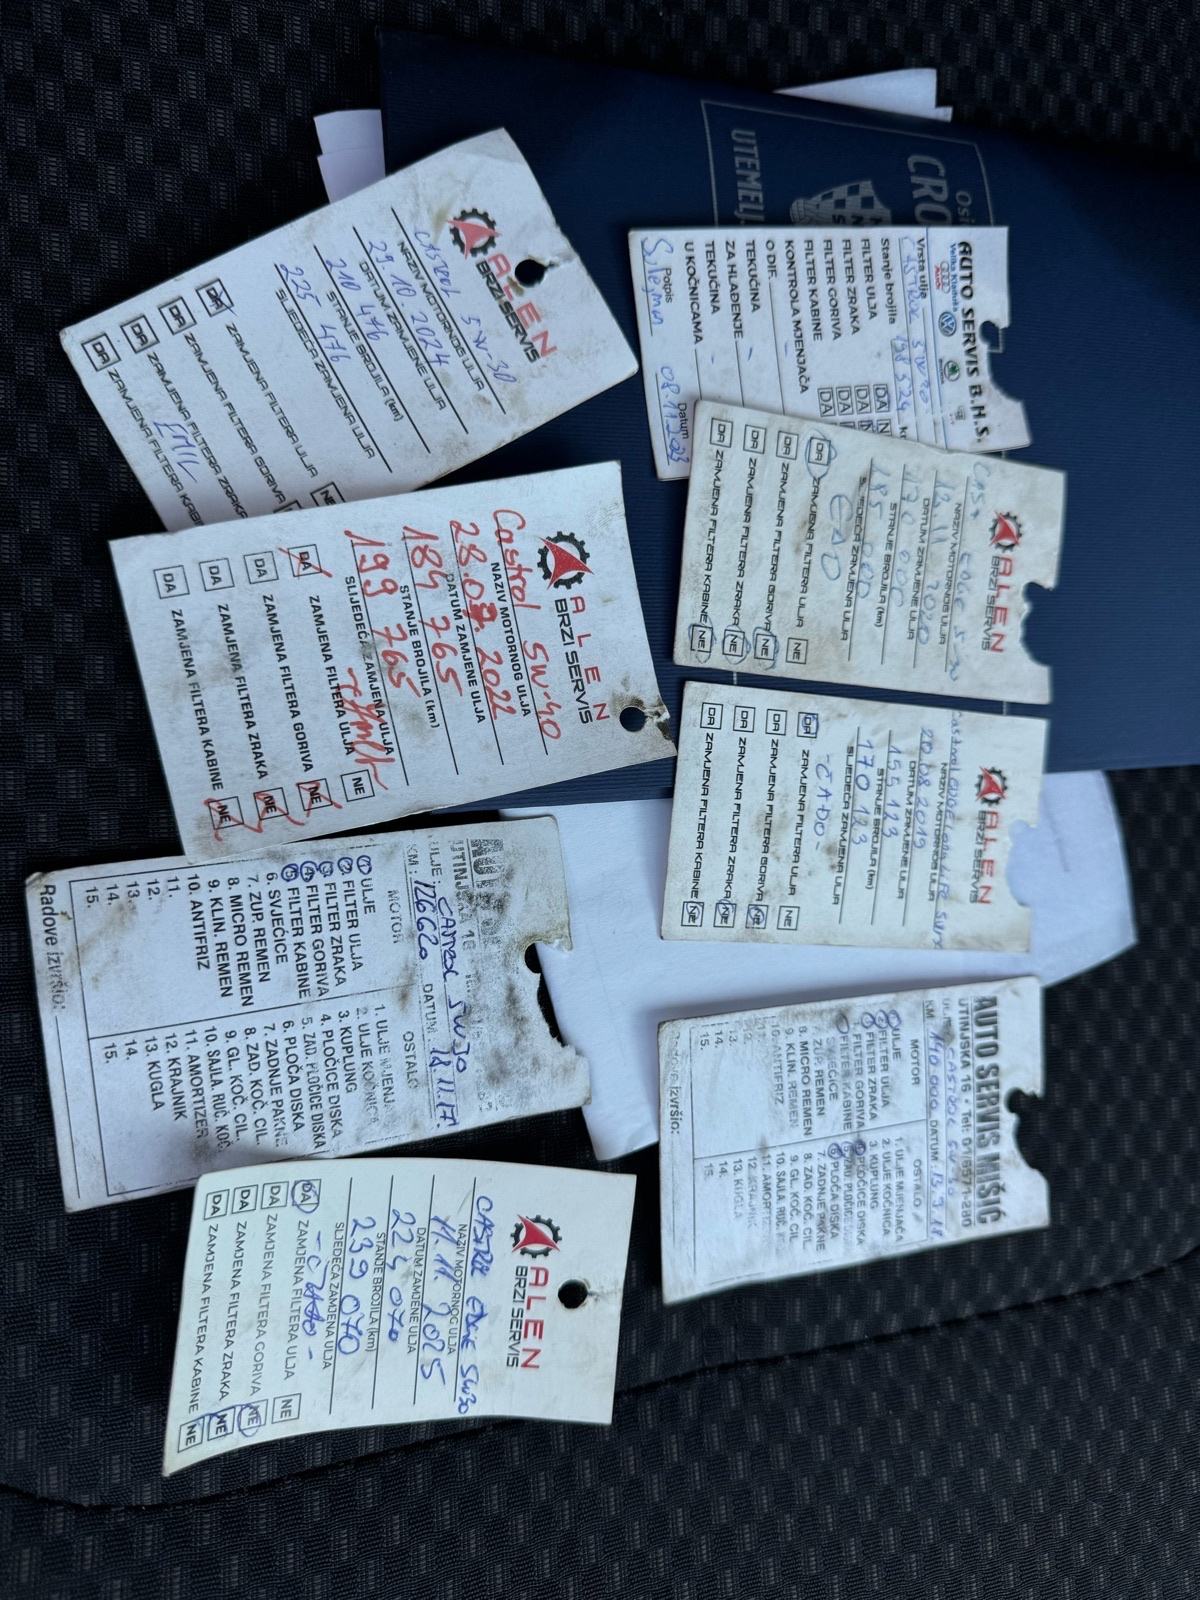 ALEN
BRZI SERVIS
Castrol 5W-30
NAZIV MOTORNOG ULJA
29.10.2024
DATUM ZAMJENE ULJA
210 476
STANJE BROJILA (km)
225 476
SLJEDEĆA ZAMJENA ULJA
DA ZAMJENA FILTERA ULJA NE
DA ZAMJENA FILTERA GORIVA
DA ZAMJENA FILTERA ZRAKA
DA ZAMJENA FILTERA KABINE
EMIL
UTEMELJ
CRO
Osi
AUTO SERVIS B.H.S.
Velika Kladuša
Audi
Vrsta ulja CASTROL 5W30
Stanje brojila 198 524 km
FILTER ULJA DA N
FILTER ZRAKA DA N
FILTER GORIVA DA
FILTER KABINE DA
KONTROLA MJENJAČA
O DIF. -
TEKUĆINA
ZA HLAĐENJE -
TEKUĆINA
U KOČNICAMA -
Potpis Datum
Sulejman 08.11.2023
ALEN
BRZI SERVIS
Castrol 5W-40
NAZIV MOTORNOG ULJA
28.07.2022
DATUM ZAMJENE ULJA
184 765
STANJE BROJILA (km)
199 765
SLIJEDEĆA ZAMJENA ULJA
DA ZAMJENA FILTERA ULJA NE
DA ZAMJENA FILTERA GORIVA NE
DA ZAMJENA FILTERA ZRAKA NE
DA ZAMJENA FILTERA KABINE NE
ALEN
BRZI SERVIS
CAST EDGE 5-30
NAZIV MOTORNOG ULJA
13 11 2020
DATUM ZAMJENE ULJA
170 000
STANJE BROJILA (km)
185 000
SLJEDEĆA ZAMJENA ULJA
EDO
DA ZAMJENA FILTERA ULJA NE
DA ZAMJENA FILTERA GORIVA NE
DA ZAMJENA FILTERA ZRAKA NE
DA ZAMJENA FILTERA KABINE NE
ALEN
BRZI SERVIS
Castrol EDGE LONG LIFE 5W30
NAZIV MOTORNOG ULJA
20.08.2019
DATUM ZAMJENE ULJA
155 123
STANJE BROJILA (km)
170 123
SLJEDEĆA ZAMJENA ULJA
-ĆADO-
DA ZAMJENA FILTERA ULJA NE
DA ZAMJENA FILTERA GORIVA NE
DA ZAMJENA FILTERA ZRAKA NE
DA ZAMJENA FILTERA KABINE NE
AUTO
UTINJSKA 16
ULJE: 5W30
KM: 126620 DATUM: 14.11.17.
MOTOR OSTALO
1. ULJE 1. ULJE MJENJA
2. FILTER ULJA 2. ULJE KOČNICA
3. FILTER ZRAKA 3. KUPLUNG
4. FILTER GORIVA 4. PLOČICE DISKA
5. FILTER KABINE 5. ZAD. PLOČICE DISKA
6. SVJEĆICE 6. PLOČA DISKA
7. ZUP. REMEN 7. ZADNJE PAKNE
8. MICRO REMEN 8. ZAD. KOČ. CIL.
9. KLIN. REMEN 9. GL. KOČ. CIL.
10. ANTIFRIZ 10. SAJLA RUČ. KOČ.
11. 11. AMORTIZER
12. 12. KRAJNIK
13. 13. KUGLA
14. 14.
15. 15.
Radove izvršio:
AUTO SERVIS MIŠIĆ
UTINJSKA 16 • Tel: 01/6571-290
ULJE CASTROL 5W-30
KM 140 000 DATUM: 13.9.18
MOTOR OSTALO
1. ULJE 1. ULJE MJENJAČA
2. FILTER ULJA 2. ULJE KOČNICA
3. FILTER ZRAKA 3. KUPLUNG
4. FILTER GORIVA 4. PLOČICE DISKA
5. FILTER KABINE 5. ZAD. PLOČICE
6. SVJEĆICE 6. PLOČA DISKA
7. ZUP. REMEN 7. ZADNJE PAKNE
8. MICRO REMEN 8. ZAD. KOČ. CIL.
9. KLIN. REMEN 9. GL. KOČ. CIL.
10. ANTIFRIZ 10. SAJLA RUČ. K
11. 11. AMORTIZ
12. 12. KRAJNIK
13. 13. KUGLA
14. 14.
15. 15.
Radove izvršio:
ALEN
BRZI SERVIS
CASTROL EDGE 5W30
NAZIV MOTORNOG ULJA
11.11.2025
DATUM ZAMJENE ULJA
224 070
STANJE BROJILA (km)
239 070
SLJEDEĆA ZAMJENA ULJA
DA ZAMJENA FILTERA ULJA NE
DA ZAMJENA FILTERA GORIVA NE
DA ZAMJENA FILTERA ZRAKA NE
DA ZAMJENA FILTERA KABINE NE